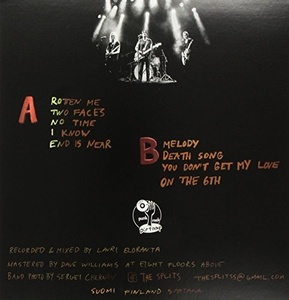 A
ROTTEN ME
TWO FACES
NO TIME
I KNOW
END IS NEAR
B
MELODY
DEATH SONG
YOU DON'T GET MY LOVE
ON THE 6TH
RECORDED & MIXED BY LAURI ELORANTA
MASTERED BY DAVE WILLIAMS AT EIGHT FLOORS ABOVE
BAND PHOTO BY SERGEI
THE SPLITS
THESPLITSS@GMAIL.COM
SUOMI FINLAND